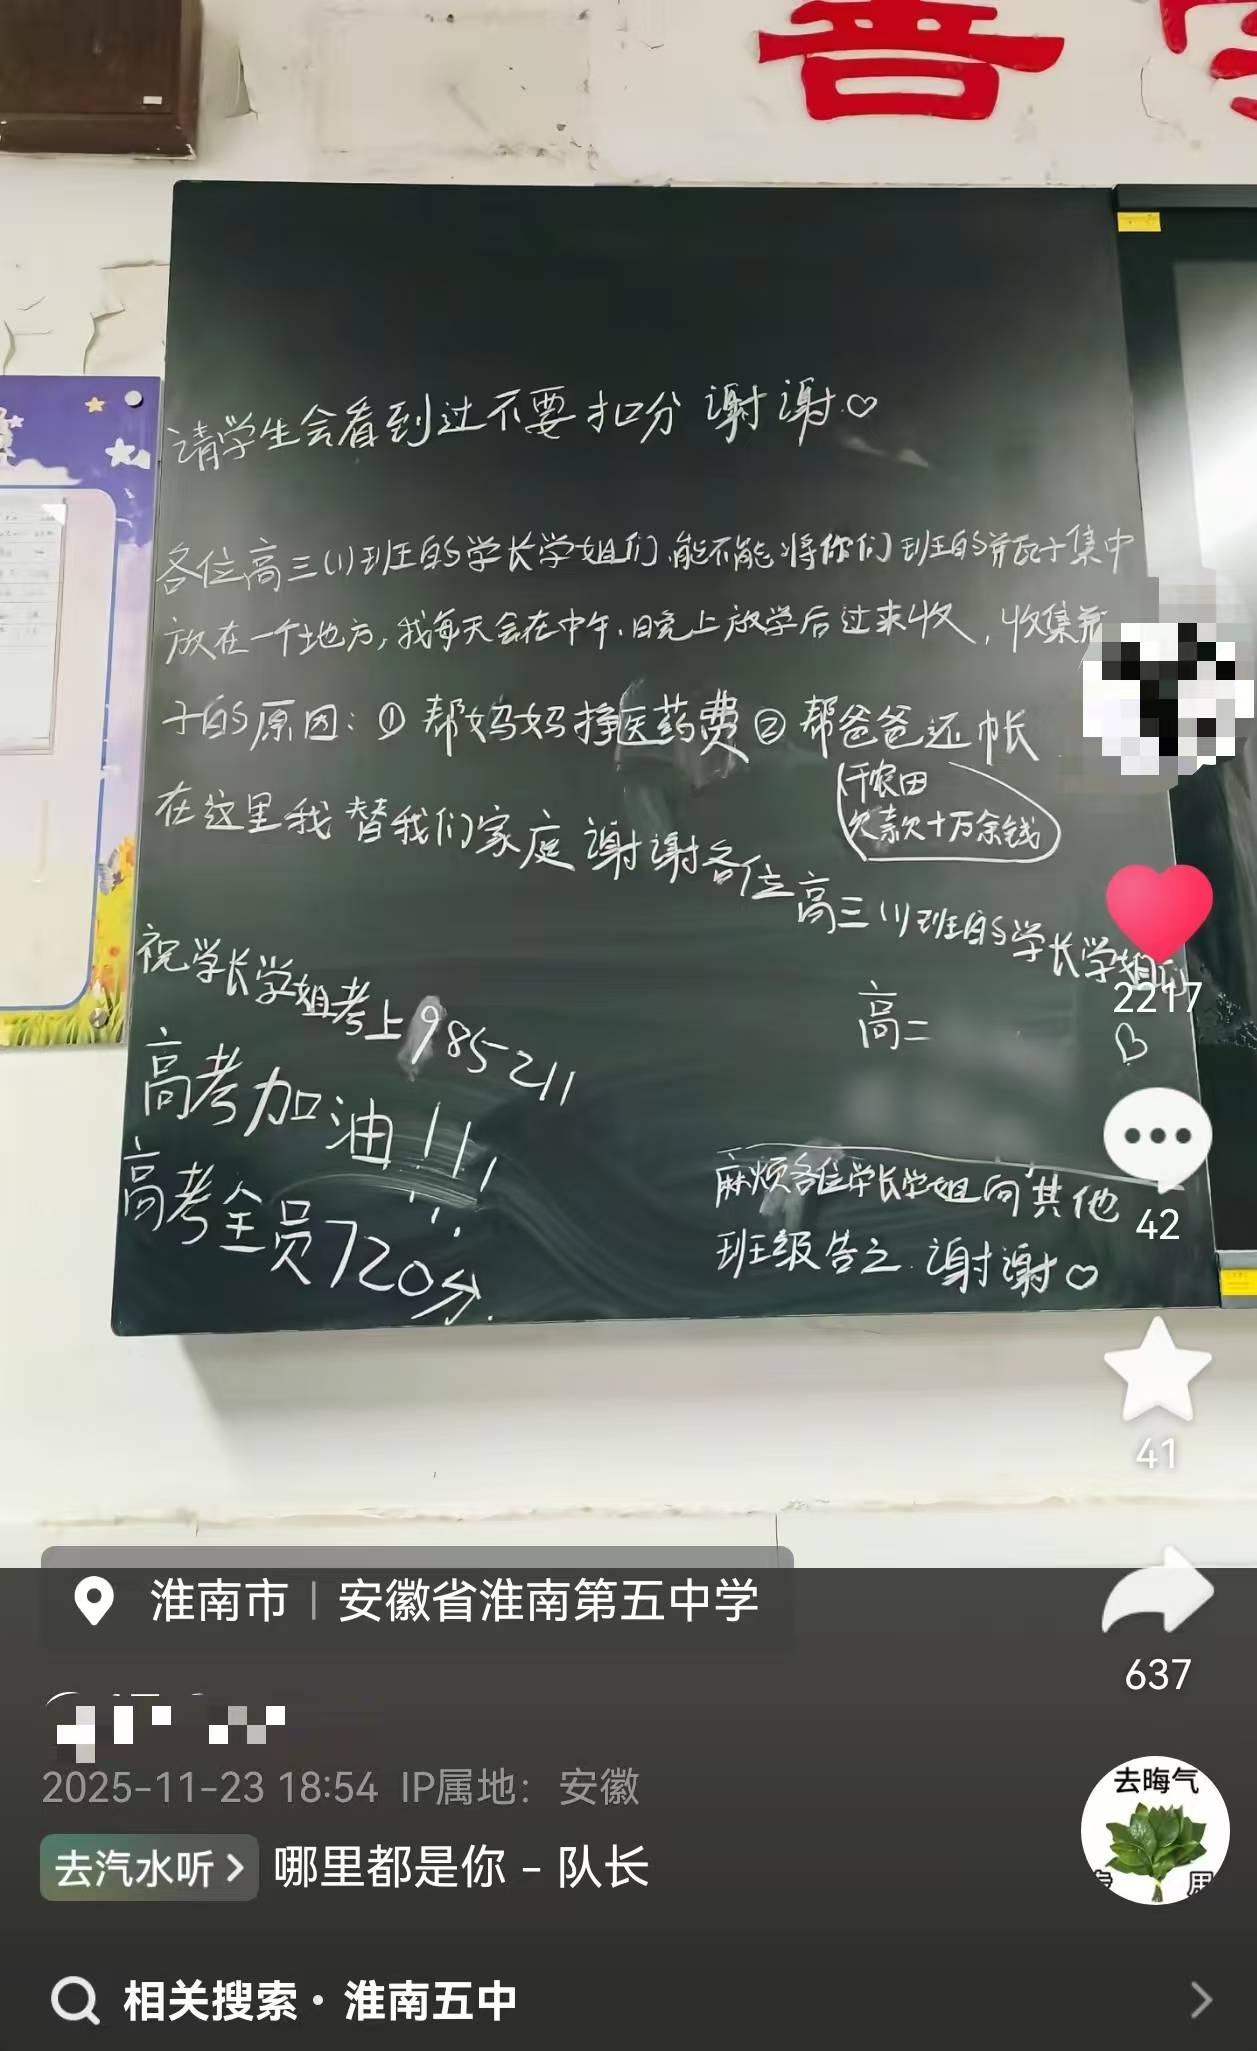 请学生会看到过不要扣分 谢谢♡
各位高三(1)班的学长学姐们,能不能将你们班的并瓦子集中
放在一个地方,我每天会在中午、晚上放学后过来收,收集
子的原因:① 帮妈妈挣医药费② 帮爸爸还帐
干农田
欠款十万余钱
在这里我替我们家庭谢谢各位高三(1)班的学长学姐们
高二
♡
祝学长学姐考上985 211
高考加油!!!
高考全员720分.
麻烦各位学长学姐向其他
班级告之.谢谢♡
2217
42
41
637
淮南市 | 安徽省淮南第五中学
2025-11-23 18:54 IP属地:安徽
去汽水听 > 哪里都是你 - 队长
去晦气
相关搜索·淮南五中